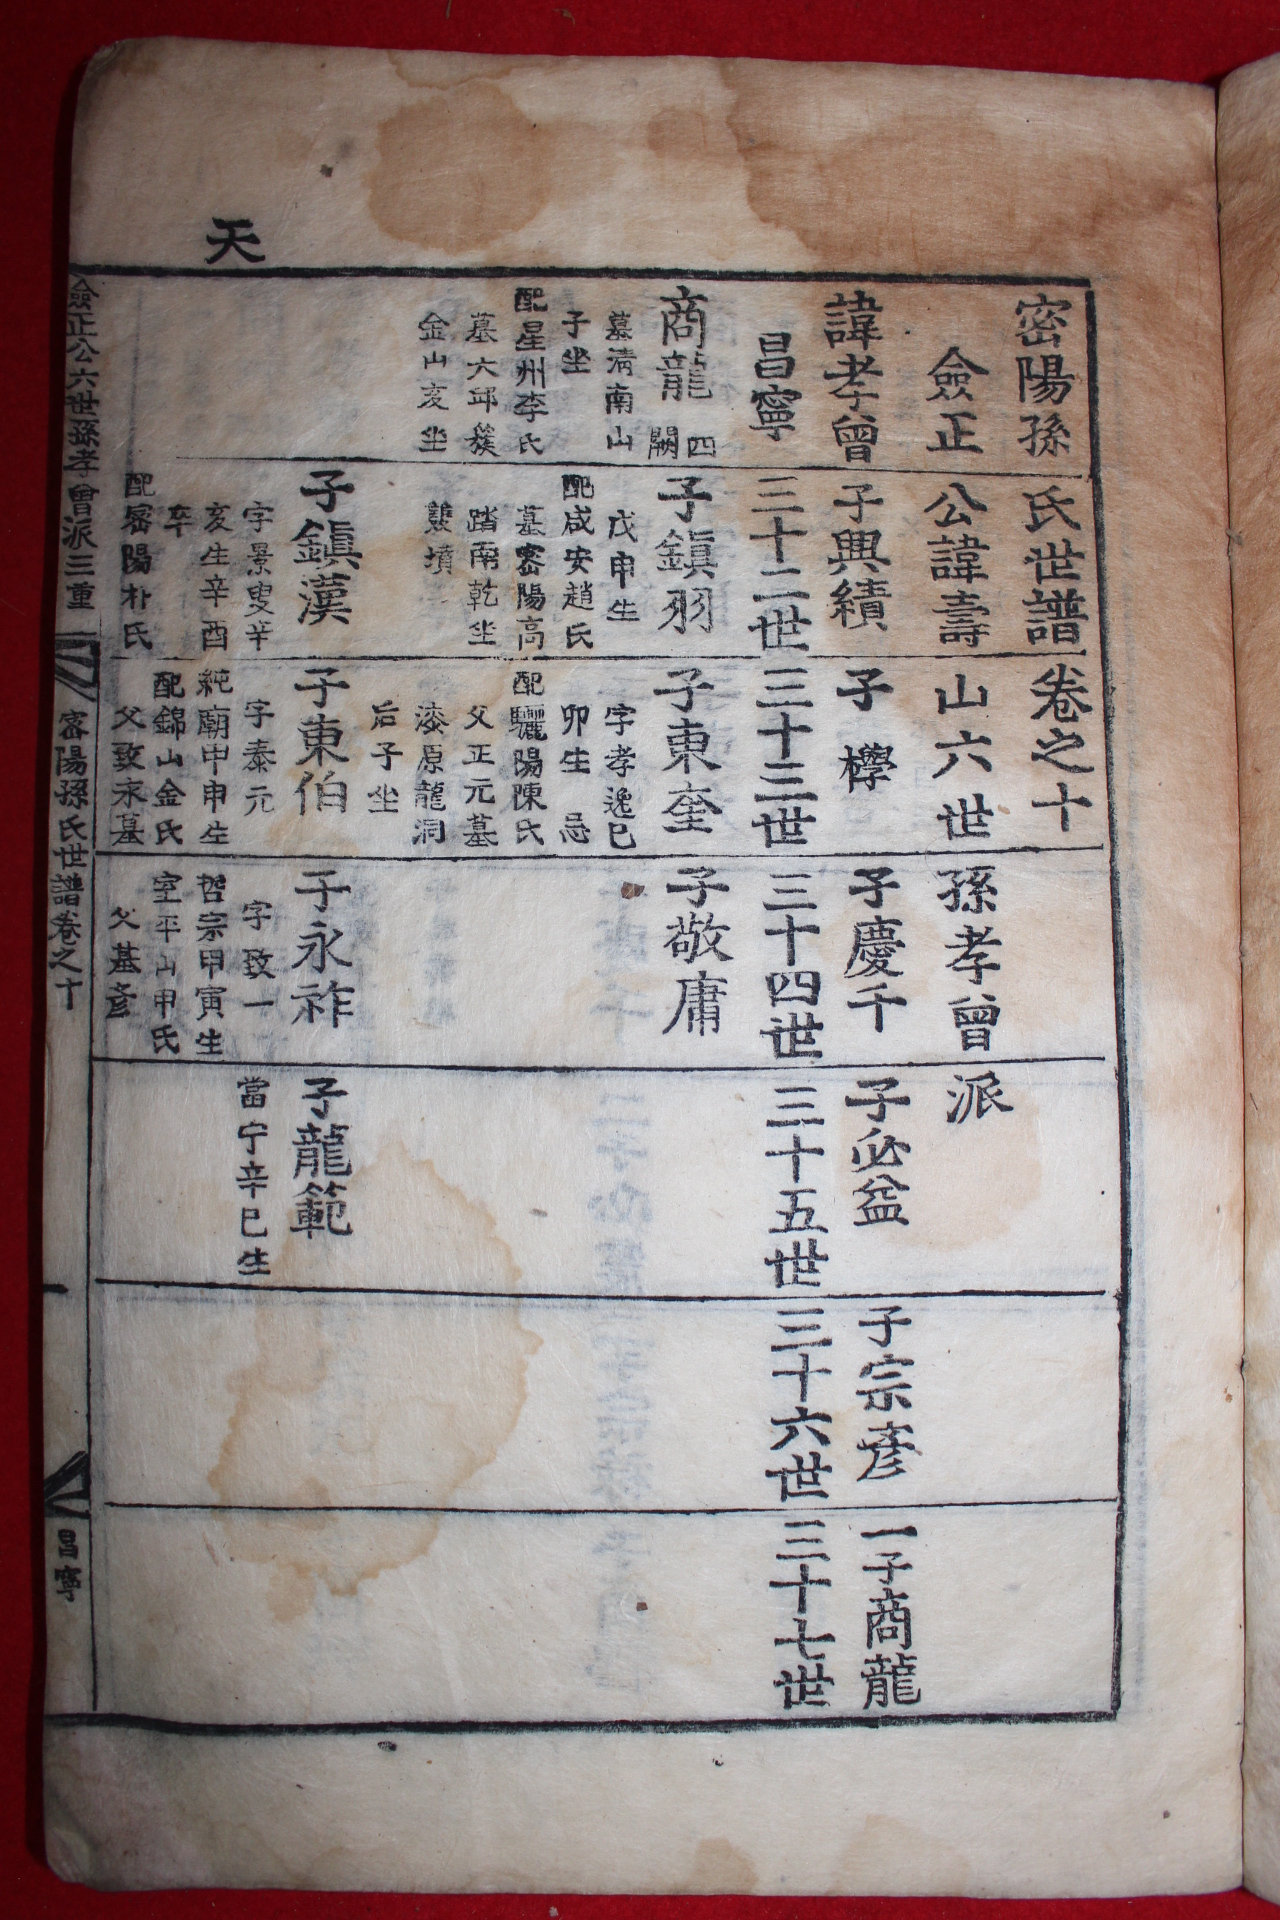 天
密陽孫氏世譜卷之十
僉正公諱壽山六世孫孝曾派
諱孝曾
子興績
子㰒
子慶千
子必益
子宗彦
一子商龍
昌寧
三十二世
三十三世
三十四世
三十五世
三十六世
三十七世
商龍
四
闕
墓淸南山
子坐
配星州李氏
墓大邱簇
金山亥坐
子鎭羽
戊申生
配咸安趙氏
墓密陽高
踏南乾坐
雙墳
子東奎
字孝逸巳
卯生 忌
配驪陽陳氏
父正元墓
漆原龍洞
后子坐
子敬庸
子鎭漢
字景叟辛
亥生辛酉
卒
配密陽朴氏
子東伯
字泰元
純廟甲申生
配錦山金氏
父致永墓
子永祚
字致一
哲宗甲寅生
室平山申氏
父基彦
子龍範
當宁辛巳生
僉正公六世孫孝曾派三重
密陽孫氏世譜卷之十
一
昌寧